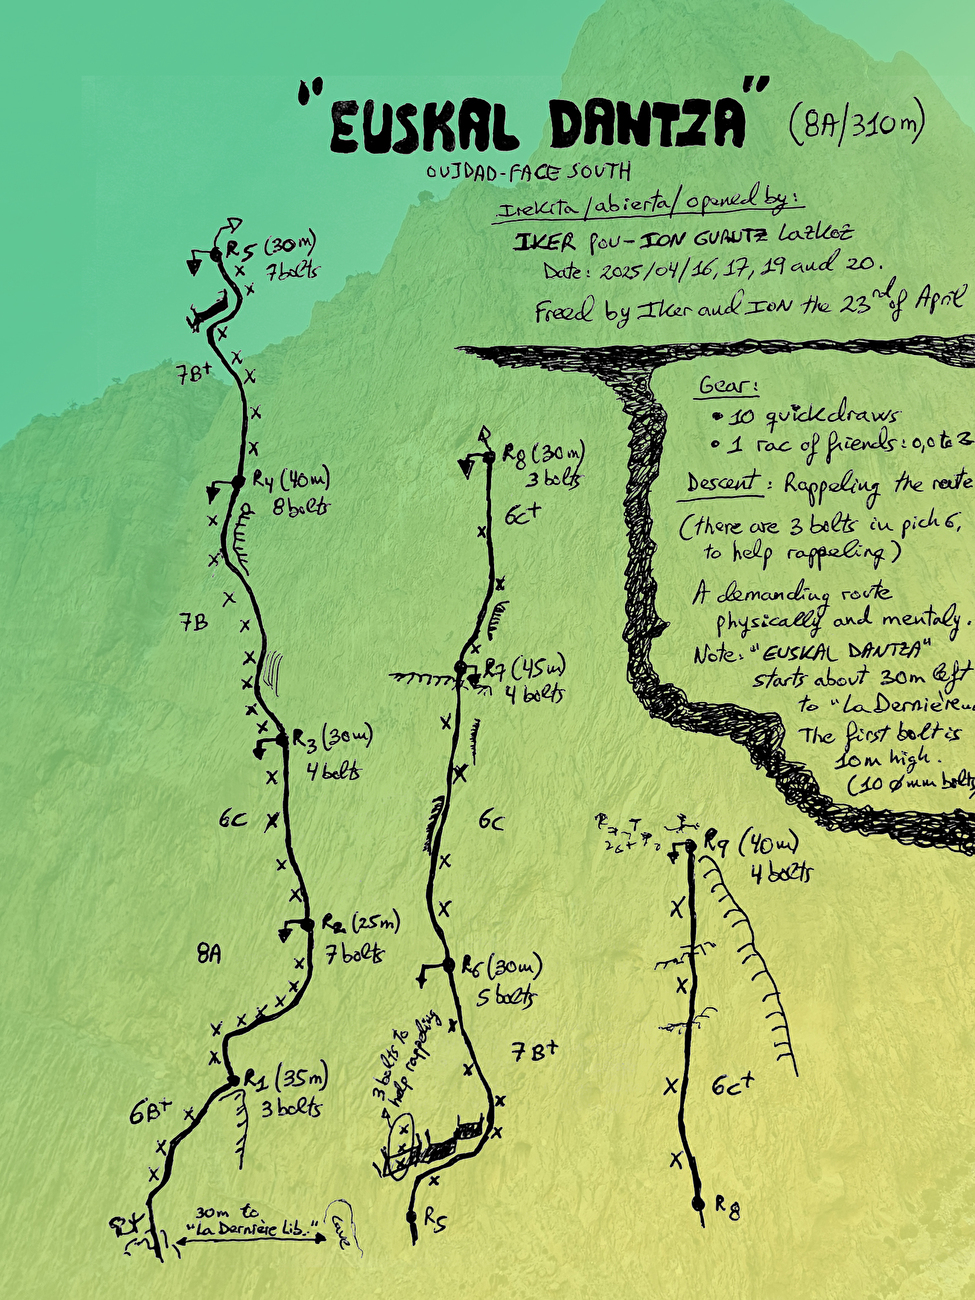 "EUSKAL DANTZA" (8A/310m)
OUJDAD-FACE SOUTH
Irekita/abierta/opened by:
IKER POU-ION GURUTZ LAZKOZ
Date: 2025/04/16, 17, 19 and 20.
Freed by Iker and ION the 23rd of April
Gear:
• 10 quickdraws
• 1 rac of friends: 0,0 to 3
Descent: Rappeling the route
(there are 3 bolts in pich 6,
to help rappeling)
A demanding route
physically and mentaly.
Note: "EUSKAL DANTZA"
starts about 30m left
to "La Dernière
The first bolt is
10m high.
(10 ømm bolts
R5 (30m)
7 bolts
7B+
R4 (40m)
8 bolts
7B
R3 (30m)
4 bolts
6C
R2 (25m)
7 bolts
8A
R1 (35m)
3 bolts
6B+
30m to
"La Dernière Lib."
Cave
R8 (30m)
3 bolts
6C+
R7 (45m)
4 bolts
6C
R6 (30m)
5 bolts
7B+
3 bolts to
help rappeling
R5
R9 (40m)
4 bolts
6C+
R8